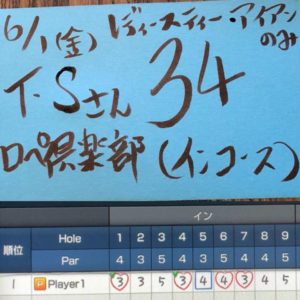 6/1(金) レディースティー・アイアン
のみ
T・Sさん 34
ロペ倶楽部(インコース)
イン
順位 Hole 1 2 3 4 5 6 7 8 9
Par 4 3 5 4 5 4 3 4 5
1 P Player1 3 3 5 3 4 4 3 4 5